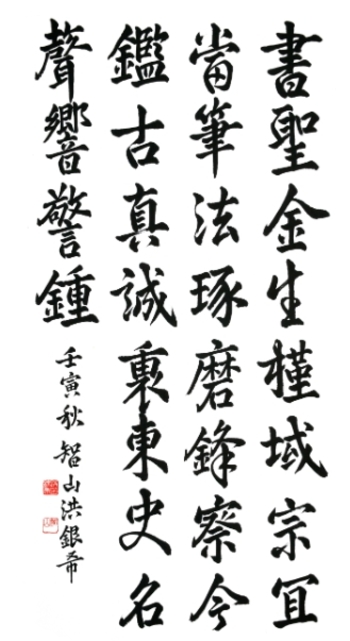 書聖金生槿域宗冝
當筆法琢磨鋒察今
鑑古真誠裏東史名
聲響警鍾
壬寅秋 智山洪銀希